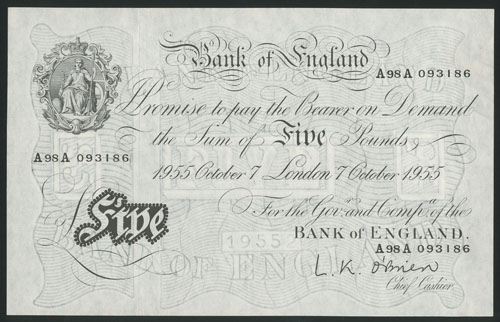 Bank of England
A98A 093186
I Promise to pay the Bearer on Demand
the Sum of Five Pounds
A98A 093186
1955 October 7 London 7 October 1955
Five
For the Govr. and Compa. of the
BANK OF ENGLAND.
1955
A98A 093186
BANK OF ENGLAND
L. K. O'Brien
Chief Cashier.